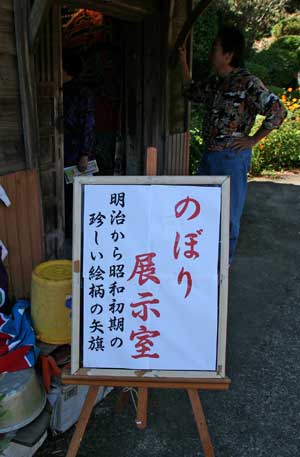 のぼり
展示室
明治から昭和初期の
珍しい絵柄の矢旗